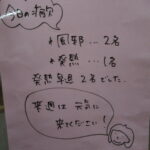 今日の病欠
*風邪…2名
*発熱…1名
発熱早退 2名でした。
来週は元気に
来てください!